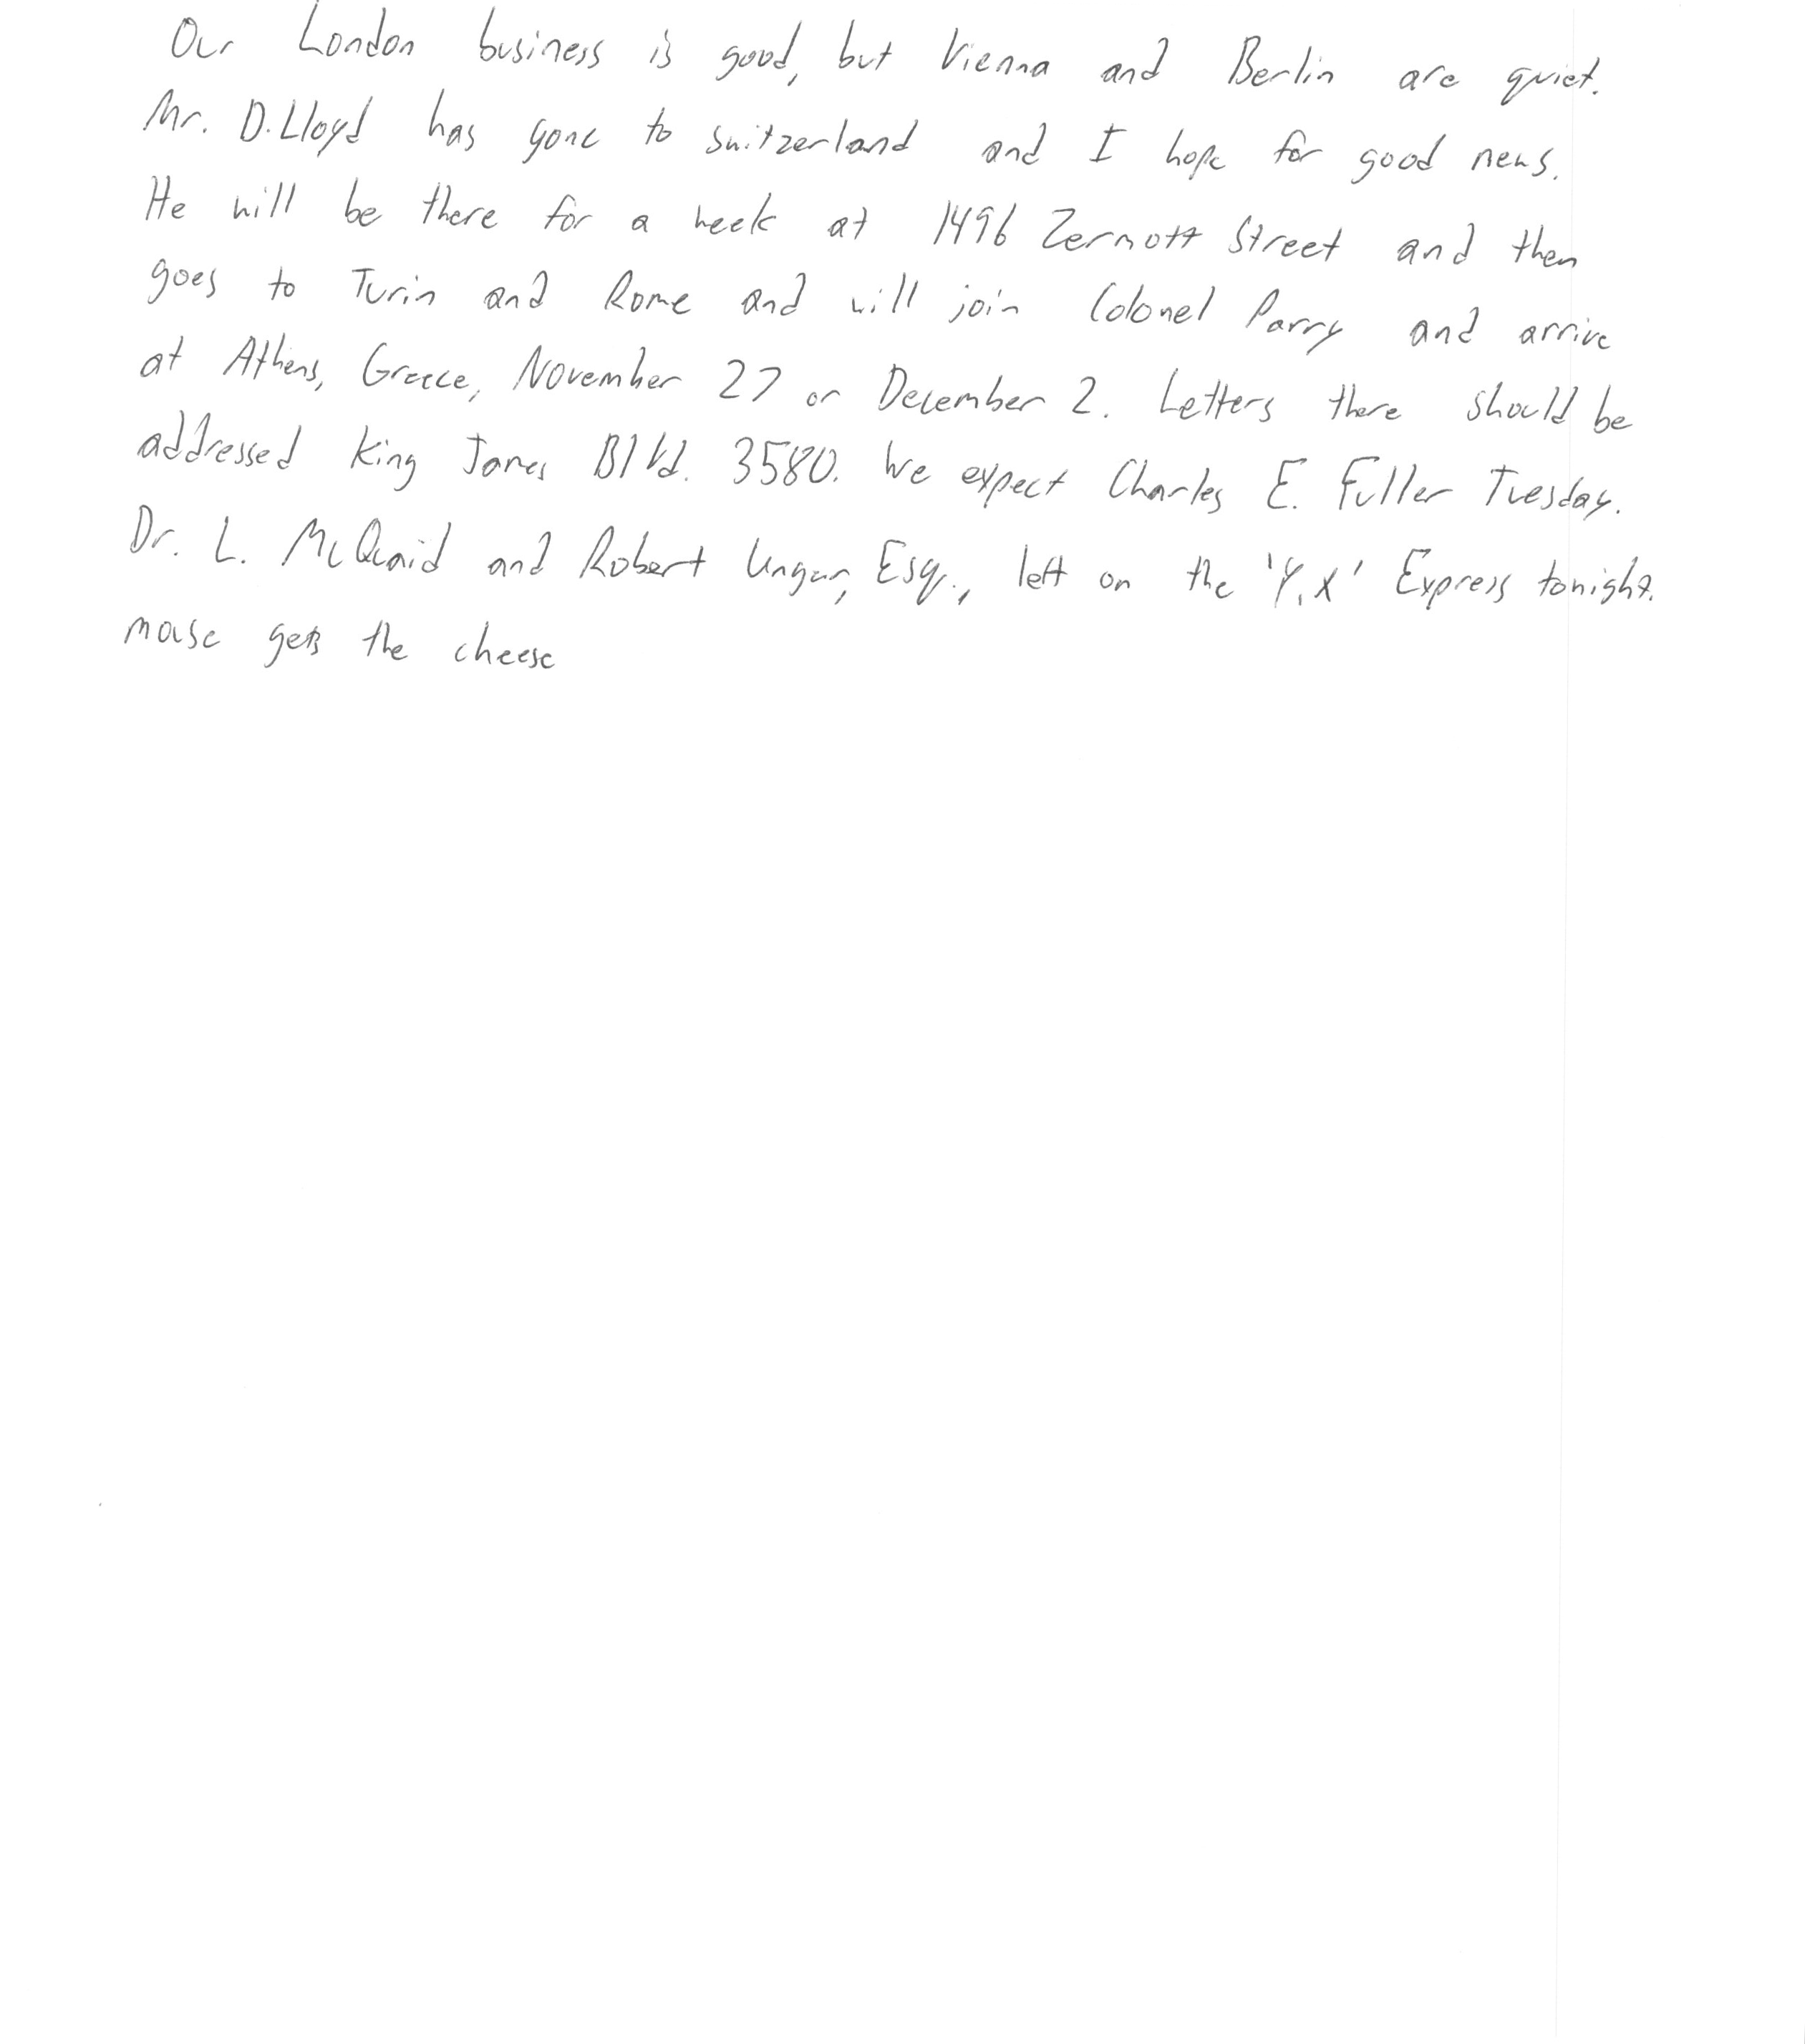 Our London business is good, but Vienna and Berlin are quiet.
Mr. D. Lloyd has gone to Switzerland and I hope for good news.
He will be there for a week at 1496 Zermott Street and then
goes to Turin and Rome and will join Colonel Parry and arrive
at Athens, Greece, November 27 or December 2. Letters there should be
addressed King James Blvd. 3580. We expect Charles E. Fuller Tuesday.
Dr. L. McQuaid and Robert Ungar, Esq., left on the 'Y.X' Express tonight.
mouse gets the cheese